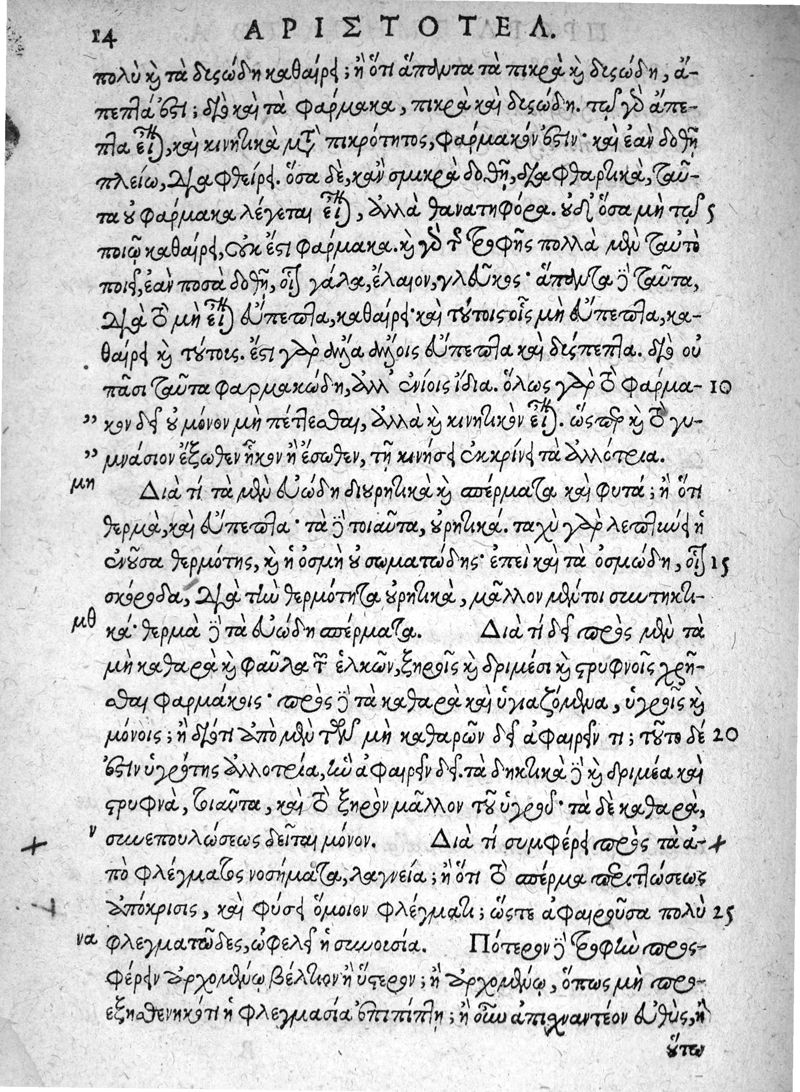 14 ΑΡΙΣΤΟΤΕΛ.
πολὺ καὶ τὰ δυσώδη καθαίρει; ἢ ὅτι ἅπαντα τὰ πικρὰ καὶ δυσώδη, ἄ-
πεπτά ἐστι; διὸ καὶ τὰ φάρμακα, πικρὰ καὶ δυσώδη. τῷ γὰρ ἄπε-
πτα εἶναι, καὶ κινητικὰ μετὰ πικρότητος, φάρμακόν ἐστιν· καὶ ἐὰν δοθῇ
πλείω, διαφθείρει. ὅσα δὲ, κἂν σμικρὰ δοθῇ, διαφθαρτικὰ, ταῦ-
τα οὐ φάρμακα λέγεται εἶναι, ἀλλὰ θανατηφόρα. οὐδ' ὅσα μὴ τῷ 5
ποιῷ καθαίρει, οὐκ ἔστι φάρμακα. καὶ γὰρ τῆς τροφῆς πολλὰ μὲν ταὐτὸ
ποιεῖ, ἐὰν ποσὰ δοθῇ, οἷον γάλα, ἔλαιον, γλεῦκος· ἅπαντα δὲ ταῦτα,
διὰ τὸ μὴ εἶναι εὔπεπτα, καθαίρει· καὶ τούτοις οἷς μὴ εὔπεπτα, κα-
θαίρει καὶ τούτοις. ἔστι γὰρ ἄλλα ἄλλοις εὔπεπτα καὶ δύσπεπτα. διὸ οὐ
πᾶσι ταῦτα φαρμακώδη, ἀλλ' ἐνίοις ἴδια. ὅλως γὰρ τὸ φάρμα- 10
" κον δεῖ οὐ μόνον μὴ πέττεσθαι, ἀλλὰ καὶ κινητικὸν εἶναι. ὥσπερ καὶ τὸ γυ-
" μνάσιον ἔξωθεν ἧκον ἢ ἔσωθεν, τῇ κινήσει ἐκκρίνει τὰ ἀλλότρια.
μη Διὰ τί τὰ μὲν εὐώδη διουρητικὰ καὶ σπέρματα καὶ φυτά; ἢ ὅτι
θερμὰ, καὶ εὔπεπτα· τὰ δὲ τοιαῦτα, οὐρητικά. ταχὺ γὰρ λεπτύνει ἡ
ἐνοῦσα θερμότης, καὶ ἡ ὀσμὴ οὐ σωματώδης· ἐπεὶ καὶ τὰ ὀσμώδη, οἷον 15
σκόροδα, διὰ τὴν θερμότητα οὐρητικὰ, μᾶλλον μέντοι συντηκτι-
μθ κά· θερμὰ δὲ τὰ εὐώδη σπέρματα. Διὰ τί δεῖ πρὸς μὲν τὰ
μὴ καθαρὰ καὶ φαῦλα τῶν ἑλκῶν, ξηροῖς καὶ δριμέσι καὶ στρυφνοῖς χρῆ-
σθαι φαρμάκοις· πρὸς δὲ τὰ καθαρὰ καὶ ὑγιαζόμενα, ὑγροῖς καὶ
μόνοις; ἢ διότι ἀπὸ μὲν τῶν μὴ καθαρῶν δεῖ ἀφαιρεῖν τι; τοῦτο δέ 20
ἐστιν ὑγρότης ἀλλοτρία, ἣν ἀφαιρεῖν δεῖ. τὰ δηκτικὰ δὲ καὶ δριμέα καὶ
στρυφνὰ, τοιαῦτα, καὶ τὸ ξηρὸν μᾶλλον τοῦ ὑγροῦ· τὰ δὲ καθαρὰ,
ν συνεπουλώσεως δεῖται μόνον. Διὰ τί συμφέρει πρὸς τὰ ἀ-
πὸ φλέγματος νοσήματα, λαγνεία; ἢ ὅτι τὸ σπέρμα περιττώσεως
ἀπόκρισις, καὶ φύσει ὅμοιον φλέγματι; ὥστε ἀφαιροῦσα πολὺ 25
να φλεγματῶδες, ὠφελεῖ ἡ συνουσία. Πότερον δὲ τροφὴν προσ-
φέρειν ἀρχομένῳ βέλτιον ἢ ὕστερον; ἢ ἀρχομένῳ, ὅπως μὴ προ-
εξησθενηκότι ἡ φλεγμασία ἐπιπίπτῃ; ἢ οὖν ἀπισχναντέον εὐθὺς, ἢ
οὕτω